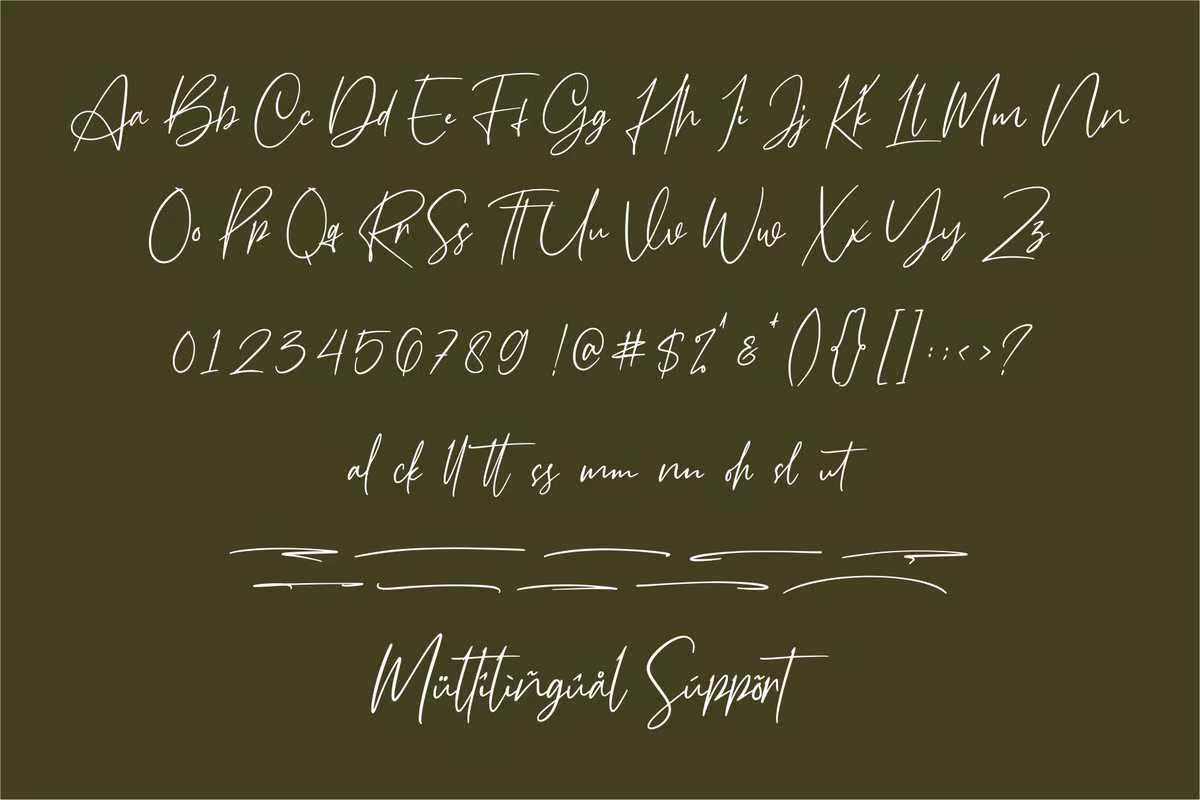 Aa Bb Cc Dd Ee Ff Gg Hh Ii Jj Kk Ll Mm Nn
Oo Pp Qq Rr Ss Tt Uu Vv Ww Xx Yy Zz
0123456789 !@#$%^&*(){}[]:;<>?
al ck ll tt ss mm nn oh sl ut
Mültîlìñgúål Súppõrt